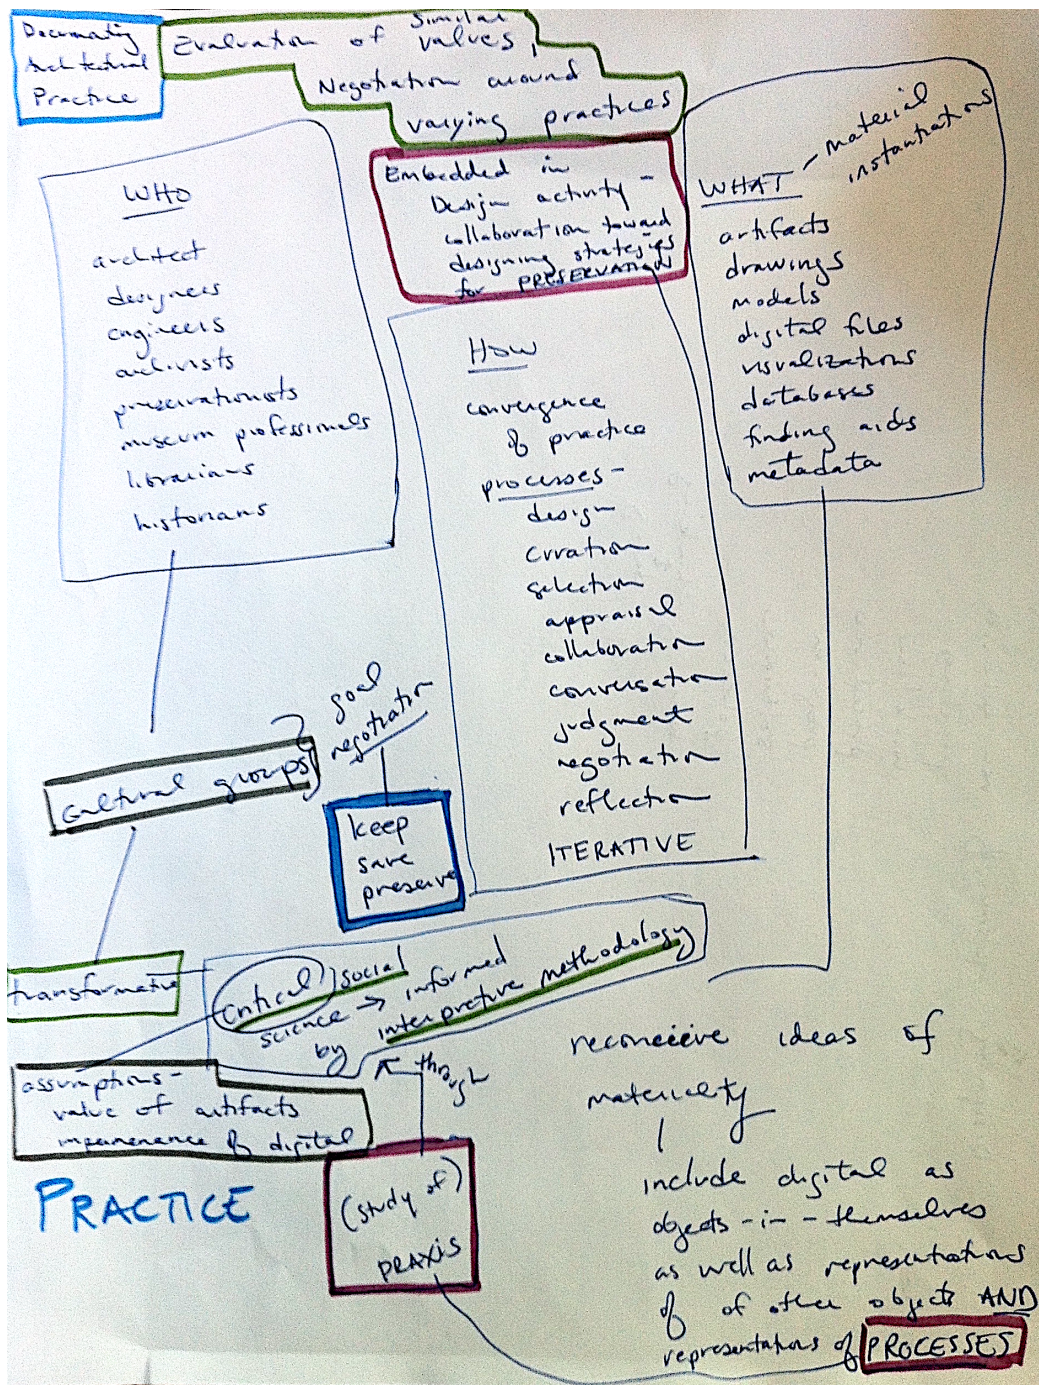 Documenting
Architectural
Practice
Evaluation of similar
values,
Negotiation around
varying practices
Embedded in
Design activity -
collaboration toward
designing strategies
for PRESERVATION
WHO
architect
designers
engineers
archivists
preservationists
museum professionals
librarians
historians
HOW
convergence
of practice
processes -
design
curation
selection
appraisal
collaboration
conversation
judgment
negotiation
reflection
ITERATIVE
WHAT - material
instantiations
artifacts
drawings
models
digital files
visualizations
databases
finding aids
metadata
cultural groups
goal
negotiation
keep
save
preserve
transformative
critical) social
science → informed
by interpretive methodology
through
assumptions -
value of artifacts
impermanence of digital
PRACTICE
(study of)
PRAXIS
reconceive ideas of
materiality
include digital as
objects-in-themselves
as well as representations
of of other objects AND
representations of PROCESSES